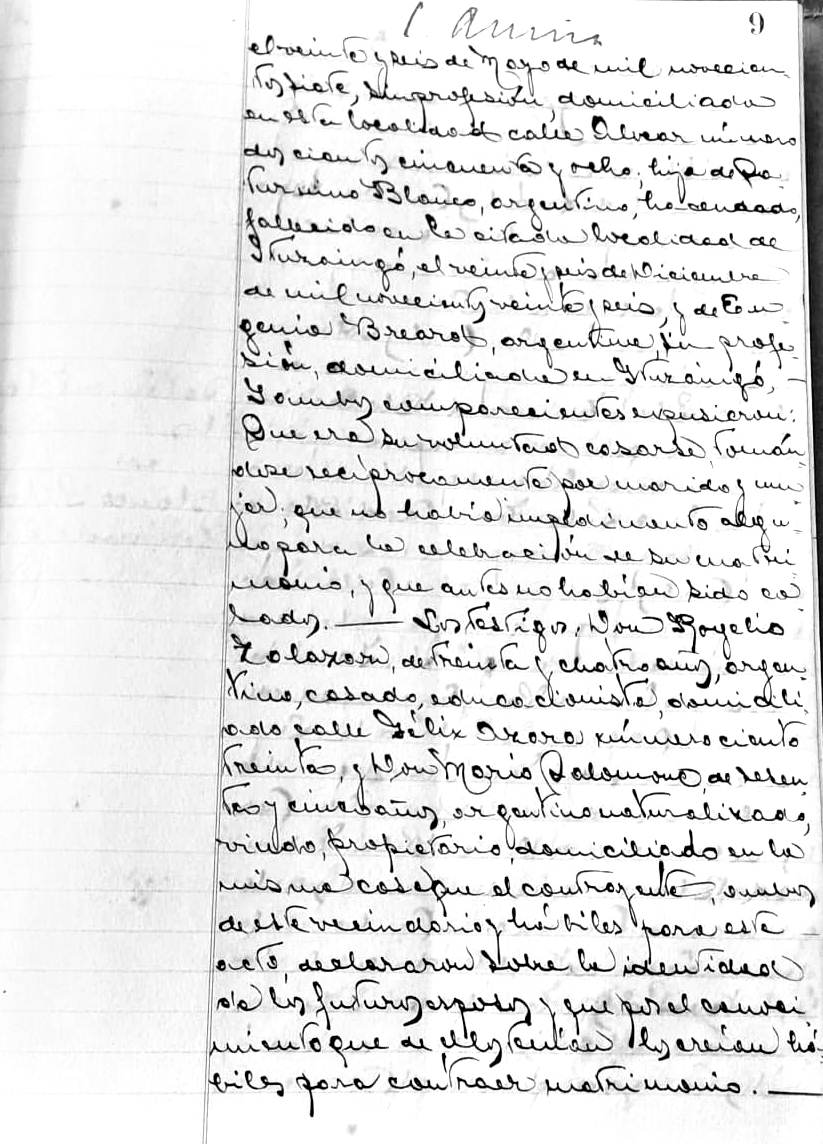 9
el veinte y seis de Mayo de mil novecien-
tos siete, sin profesión, domiciliada
en esta localidad calle Alvear número
doscientos cincuenta y ocho; hija de Sa-
turnino Blanco, argentino, hacendado,
fallecido en la citada localidad de
Ituzaingó, el veinte y seis de Diciembre
de mil novecientos veinte y seis, y de Eu-
genia Breard, argentina, sin profe-
sión, domiciliada en Ituzaingó, —
Y ambos comparecientes expusieron:
Que era su voluntad casarse, tomán-
dose recíprocamente por marido y mu-
jer; que no había impedimento algu-
no para la celebración de su matri-
monio, y que antes no habían sido ca-
sados. — Los testigos, Don Rogelio
de treinta y cuatro años, argen-
tino, casado, educacionista, domicili-
ado calle Félix Azara número ciento
treinta, y Don Mario Salomone, de sesen-
ta y cinco años, argentino naturalizado,
viudo, propietario, domiciliado en la
misma casa que el contrayente, ambos
de este vecindario y hábiles para este
acto, declararon sobre la identidad
de los futuros esposos y que por el conoci-
miento que de ellos tenían los creían há-
biles para contraer matrimonio. —